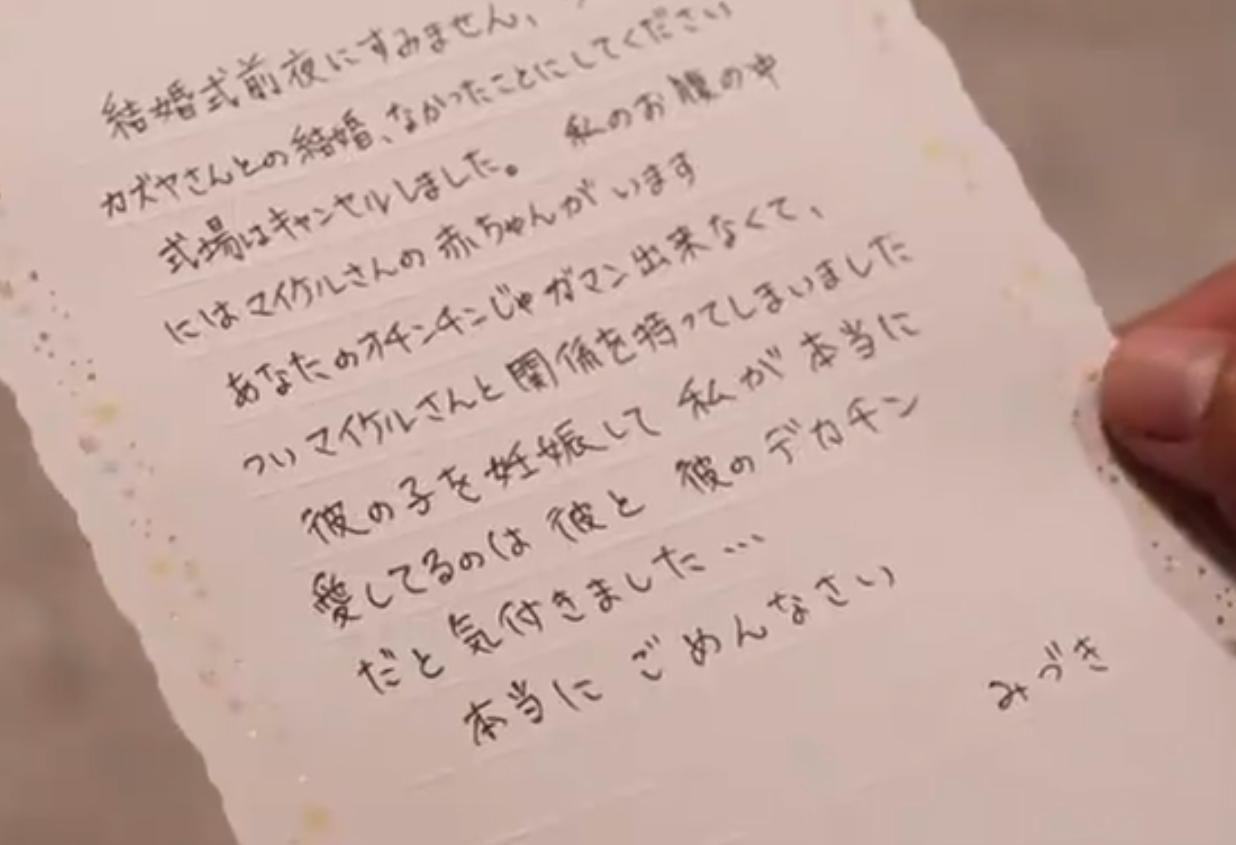 結婚式前夜にすみません、
カズヤさんとの結婚、なかったことにしてください
式場はキャンセルしました。 私のお腹の中
にはマイケルさんの赤ちゃんがいます
あなたのオチンチンじゃガマン出来なくて、
ついマイケルさんと関係を持ってしまいました
彼の子を妊娠して 私が本当に
愛してるのは 彼と 彼のデカチン
だと気付きました…
本当に ごめんなさい
みづき